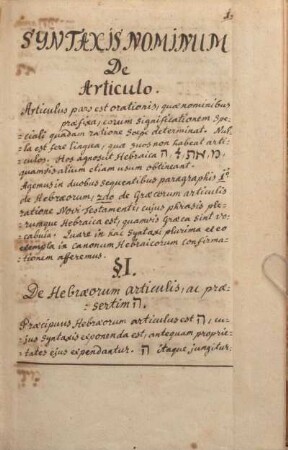 SYNTAXIS NOMINUM
De
Articulo.
Articulus pars est orationis, quæ nominibus
præfixa, eorum significationem spe-
ciali quadam ratione determinat. Nul-
la est fere lingua, quæ suos non habeat arti-
culos. Hos agnoscit Hebraica
quamvis alium etiam usum obtineant.
Agemus in duobus sequentibus paragraphis
de Hebræorum, 2do de Græcorum articulis
ratione Novi Testamenti, cujus phrasis ple-
rumque Hebraica est, quamvis Græca sint vo-
cabula. Quare in hac Syntaxi plurima et eo
exempla in canonum Hebraicorum confirma-
tionem afferemus.
§I.
De Hebræorum articulis, ac præ-
sertim ה.
Præcipuus Hebræorum articulus est ה, cu-
jus syntaxis exponenda est, antequam proprie-
tates ejus expendantur. ה itaque jungitur